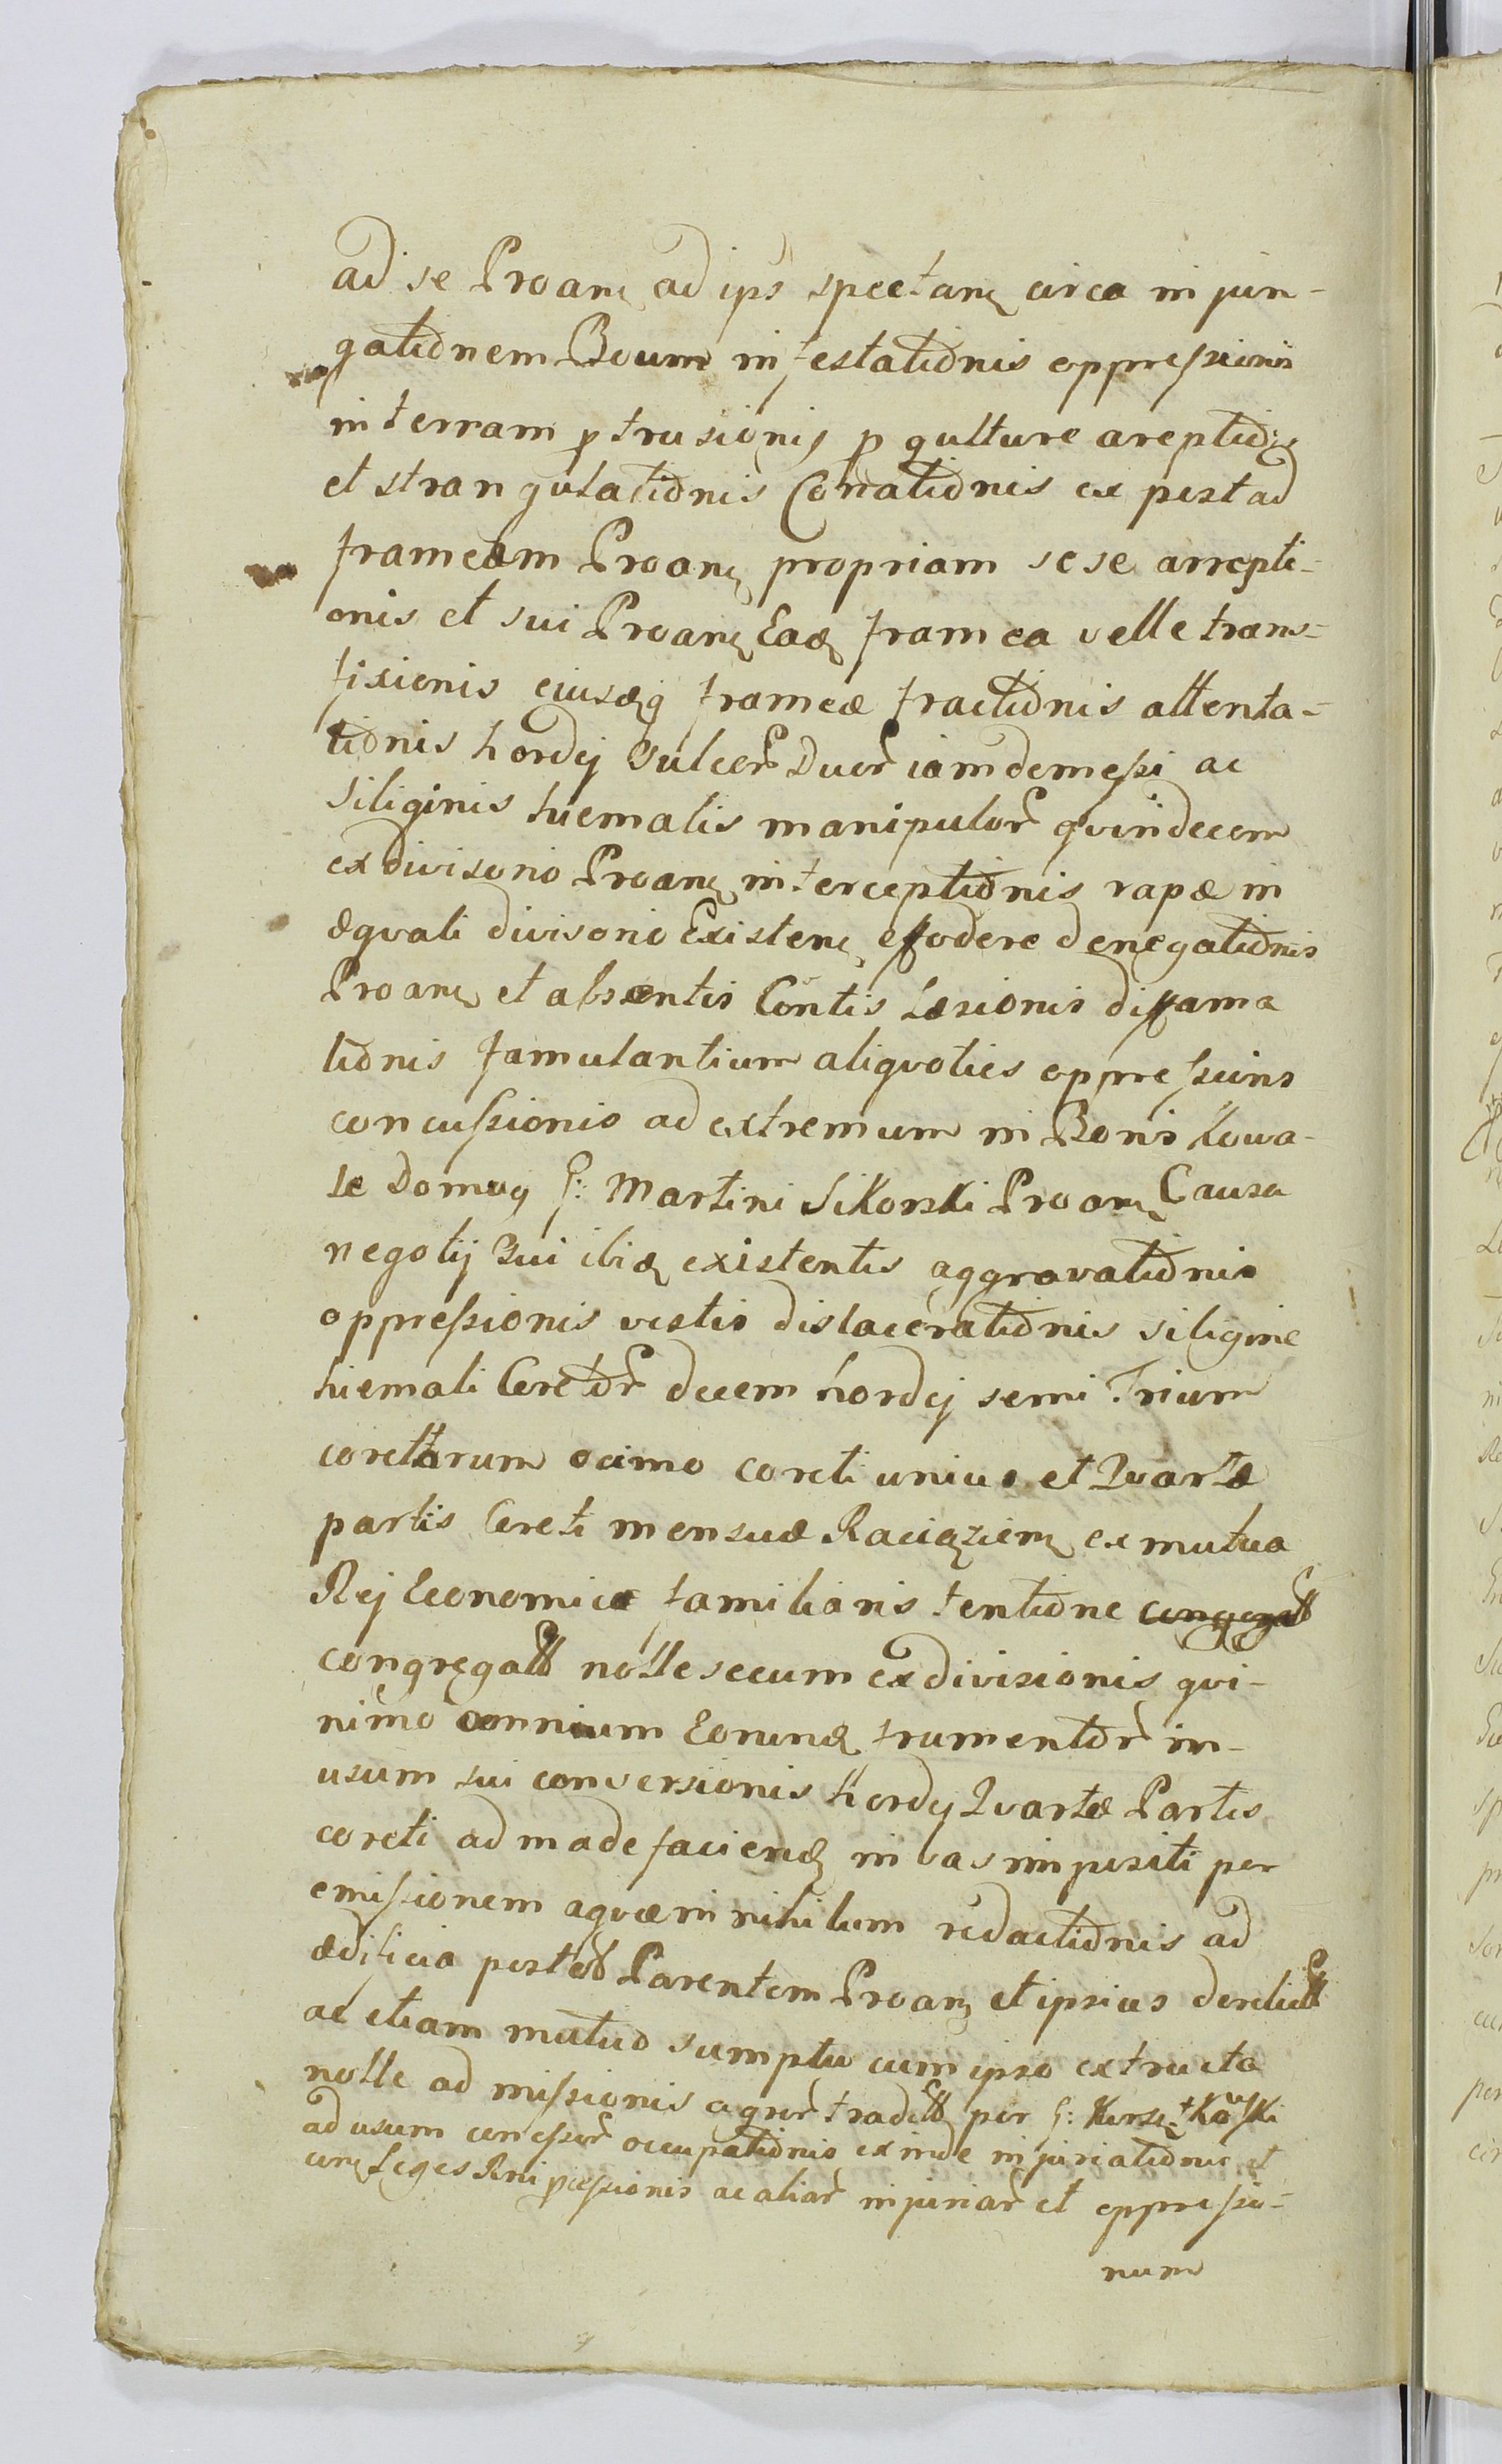 ad se Proanȩ ad ips spectanȩ circa in jun-
gationem Boum infestationis oppressionis
in terram ptrusionis p gulture areptiois
et strangulationis Conationis ex post ad
frameam Proanȩ propriam sese arrepti-
onis et sui Proanȩ Eadȩ framea velle trans-
fixionis eiusdȩq frameæ fractionis attenta-
tionis hordej Sulcor Duor iam demessi ac
Siliginis hiemalis manipulor qvindecem
ex divisorio Proanȩ interceptionis rapæ in
æqvali divisorio Existenȩ effodere denegationis
Proanȩ et absentis Contis Læsionis diffama
tionis famulantium aliqvoties oppressions
concussionis ad extremum in Bonis Kowa-
le Domuq G: Martini Sikorski Proanȩ Causa
negotij Sui ibidȩ existentis aggravationis
oppressionis vestis dislacerationis siligine
hiemali Coretor decem hordej semi Trium
corettorum ocimo coreti unius et Qvartæ
partis Coreti mensuæ Raciązienȩ ex mutua
Rej Economicæ familiaris tentione
congregatt nolle secum ex divisionis qvi-
nimo omnium Eorundȩ frumentor in-
usum sui conversionis Hordej Qvartæ Partis
coreti ad madefaciendȩ in vas impositi per
emissionem aqvæ in nihilum redactionis ad
ædificia post Parentem Proanȩ et ipsius derelictt
ac etiam mutuo sumptu cum ipso extructa
nolle admissionis agror traditt per G:
ad usum concessor occupationis exinde injuriationis et
conȩ Leges Rni pcessionis ac aliar injuriar et oppressio-
num